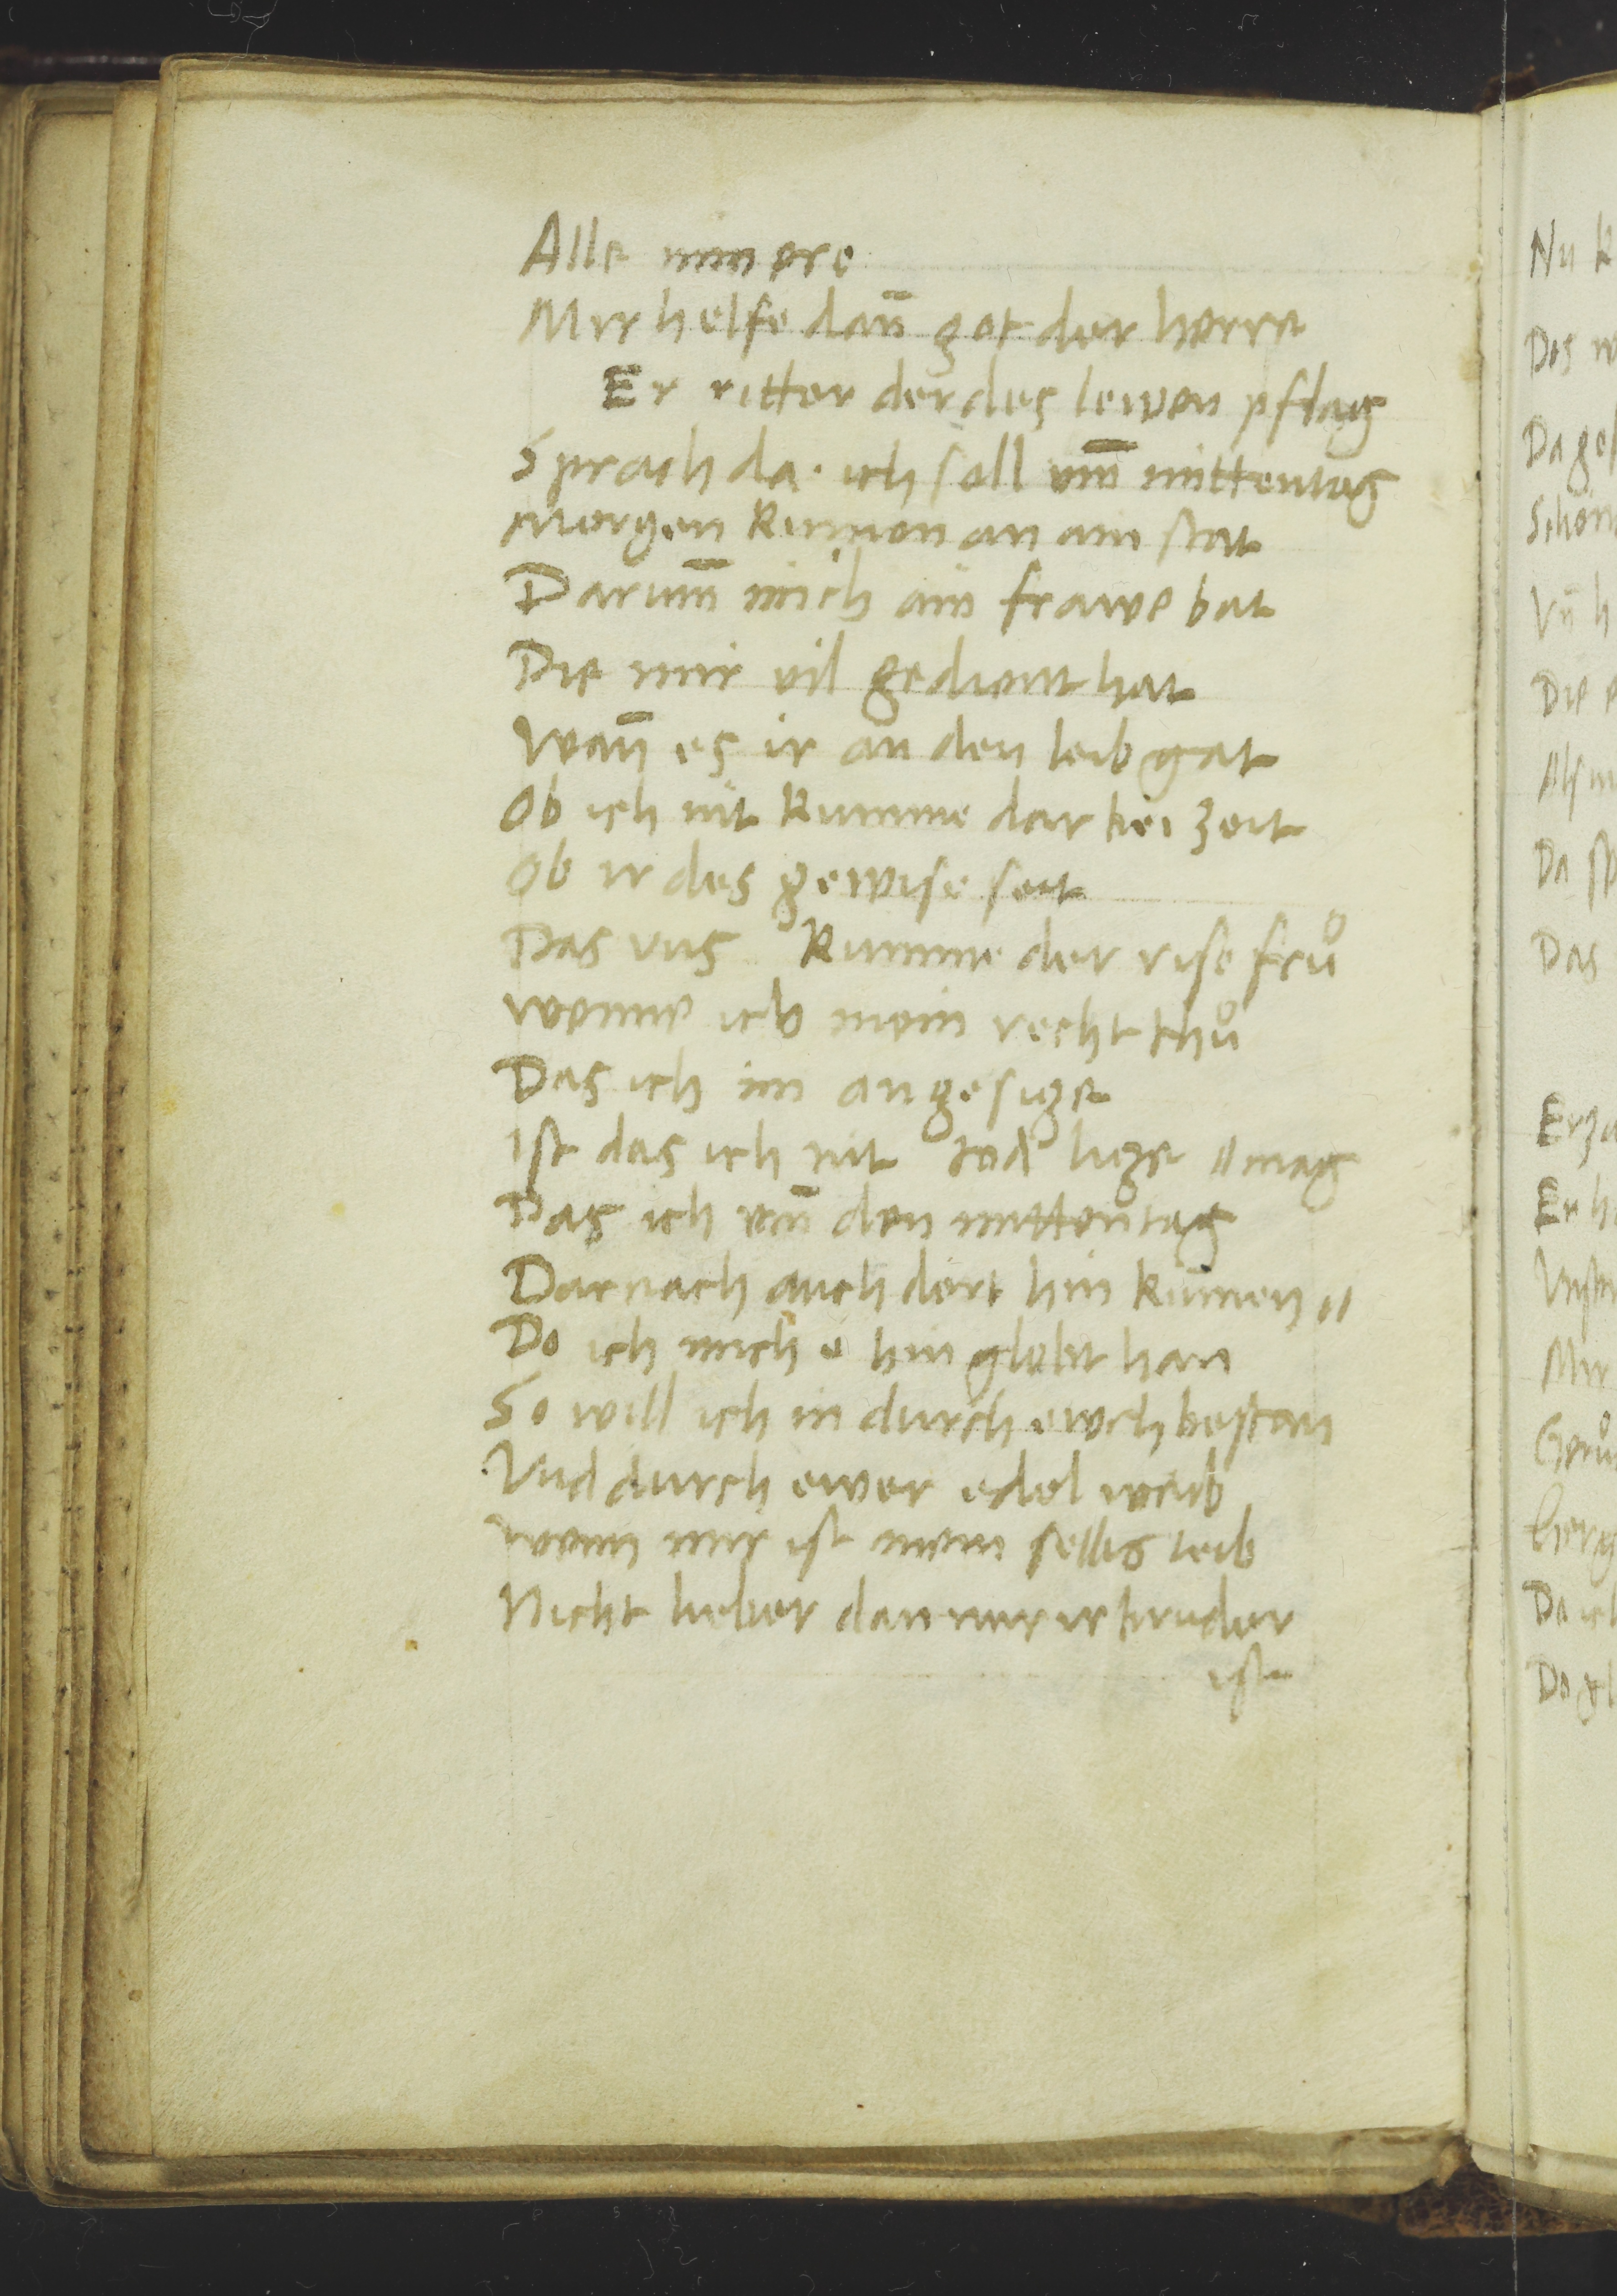 Alle min ere
Mir helfe dan̄ got der herre
Er ritter der des lewen pflag
Sprach da. ich soll vm̄ mittentag
Morgen kumen an ain stat
Darum̄ mich ain frawe bat
Die mir vil gedient hat
Wan̄ es ir an den leib gat
Ob ich nit kumme dar bei zeit
Ob ir des gewise seit
Das vns kumme der rise frů
wenne ich mein recht thů
Das ich im angesige
Ist das ich nit tod lige // mag
Das ich vm̄ den mittentag
Darnach auch dort hin kūmen //
Do ich mich e hin globt han
So will ich in durch ewch bestan
Vnd durch ewer edel weib
wenn mir ist mein selbs leib
Nicht lieber dan mir ir bruder
ist
Nu k
Das w
Da ges
Schön
Vn̄ h
Die e
Als m
Da sp
Das
Erza
Er h
Mir
Da ich
Do gl